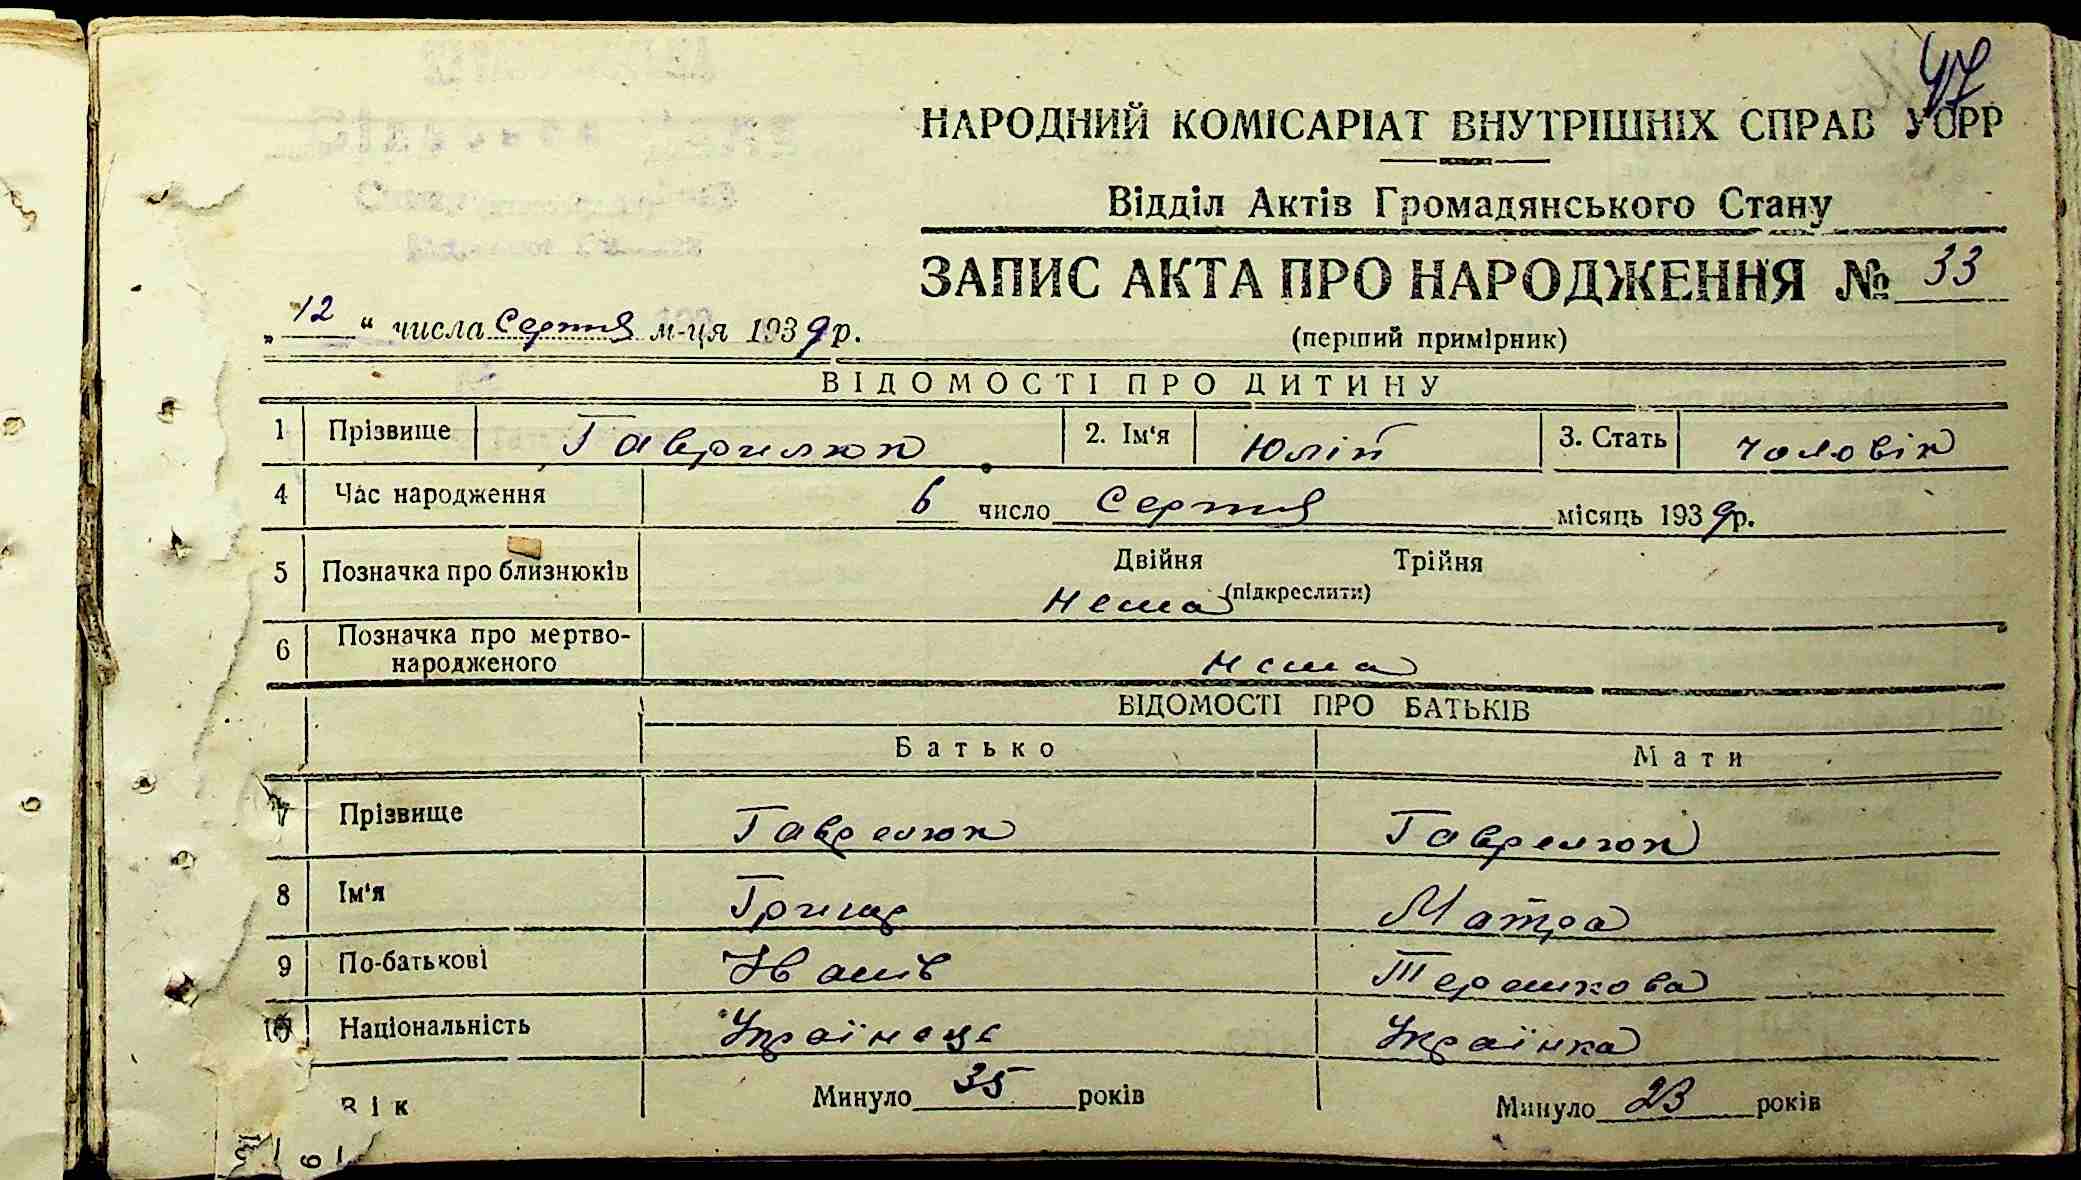 47
НАРОДНИЙ КОМІСАРІАТ ВНУТРІШНІХ СПРАВ УСРР
Відділ Актів Громадянського Стану
ЗАПИС АКТА ПРО НАРОДЖЕННЯ № 33
„12“ числа Серпня м-ця 1939 р.
(перший примірник)
ВІДОМОСТІ ПРО ДИТИНУ
1 Прізвище Гаврилюк 2. Ім'я Юлій 3. Стать чоловік
4 Час народження 6 число Серпня місяць 1939 р.
5 Позначка про близнюків Двійня Трійня
(підкреслити)
нема
6 Позначка про мертво-
народженого нема
ВІДОМОСТІ ПРО БАТЬКІВ
Батько Мати
7 Прізвище Гаврелюк Гаврелюк
8 Ім'я Гриць Мотра
9 По-батькові Іванів
10 Національність Українець Українка
Вік Минуло 35 років Минуло 23 років